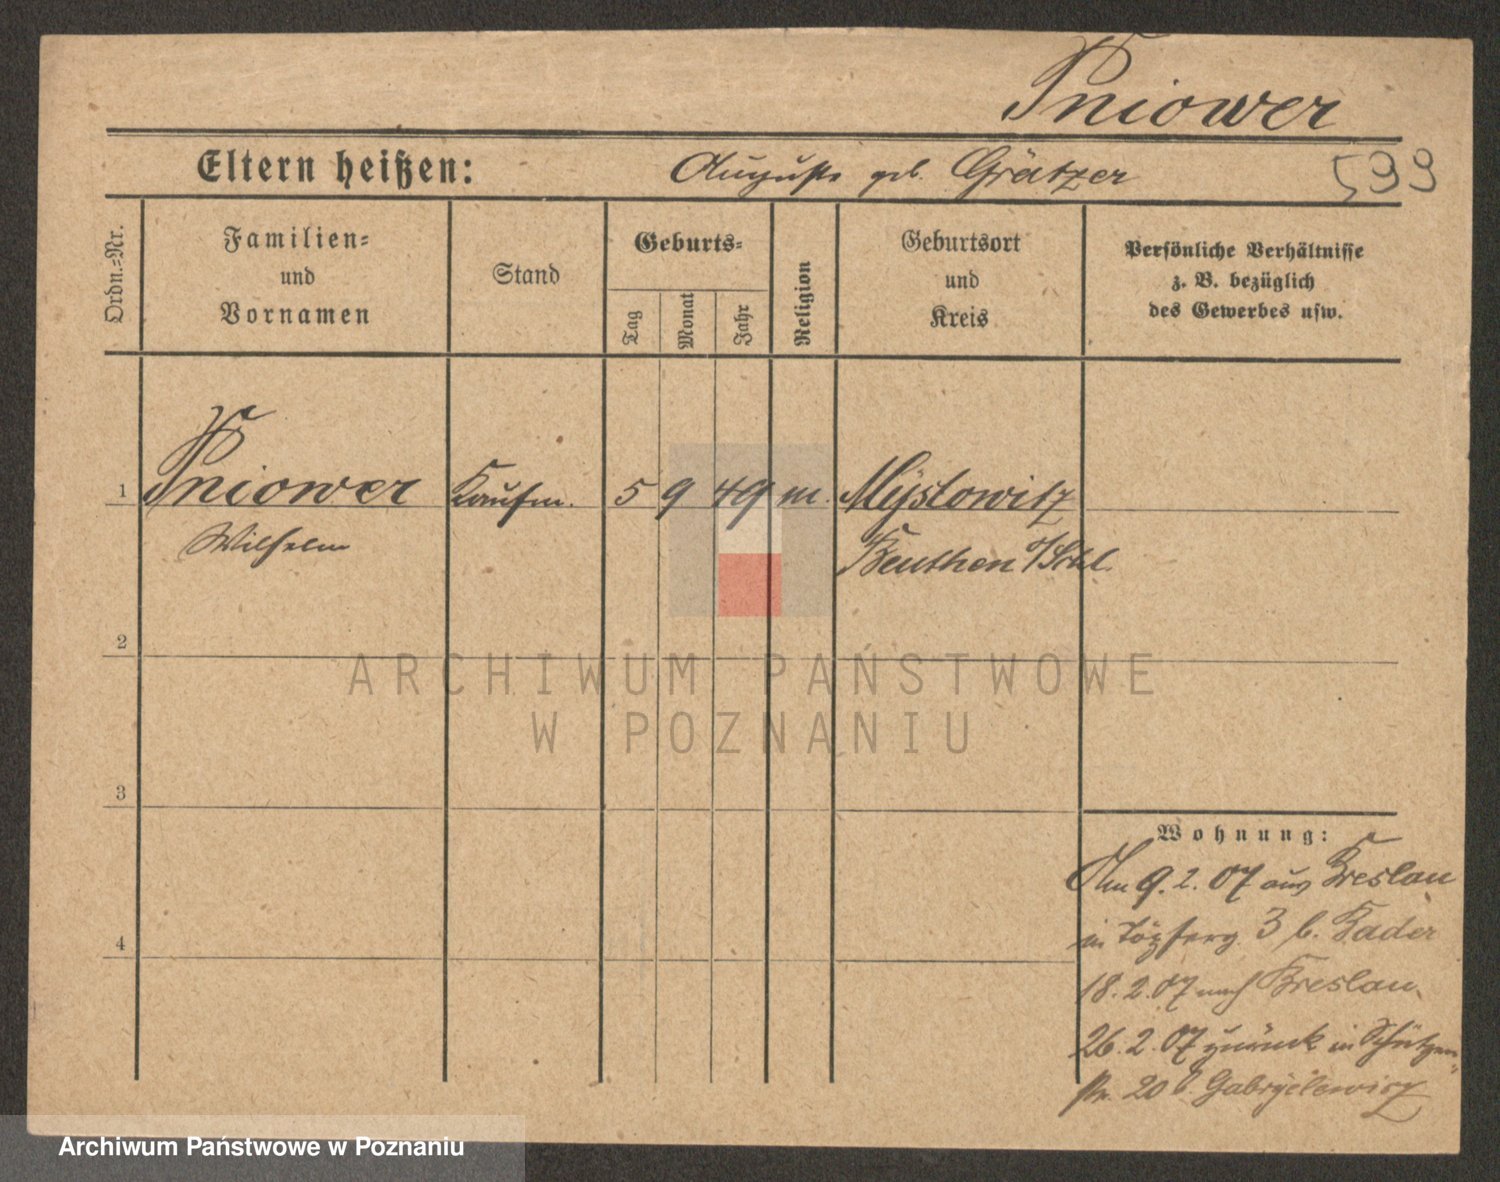 Pniower
Eltern heißen: Auguste geb. Grätzer 599
Ordn.-Nr.
Familien-
und
Vornamen
Stand
Geburts-
Tag
Monat
Jahr
Religion
Geburtsort
und
Kreis
Persönliche Verhältnisse
z. B. bezüglich
des Gewerbes usw.
1 Pniower Kaufm. 5 9 49 m. Myslowitz
Wilhelm Beuthen O/Schl.
2
ARCHIWUM PAŃSTWOWE
W POZNANIU
3
Wohnung:
Am 9.2.07 aus Breslau
in Töpferg. 3 b. Bader
4
18.2.07 nach Breslau.
26.2.07 zurück in Schützen
str. 20 b. Gabryelewicz
Archiwum Państwowe w Poznaniu